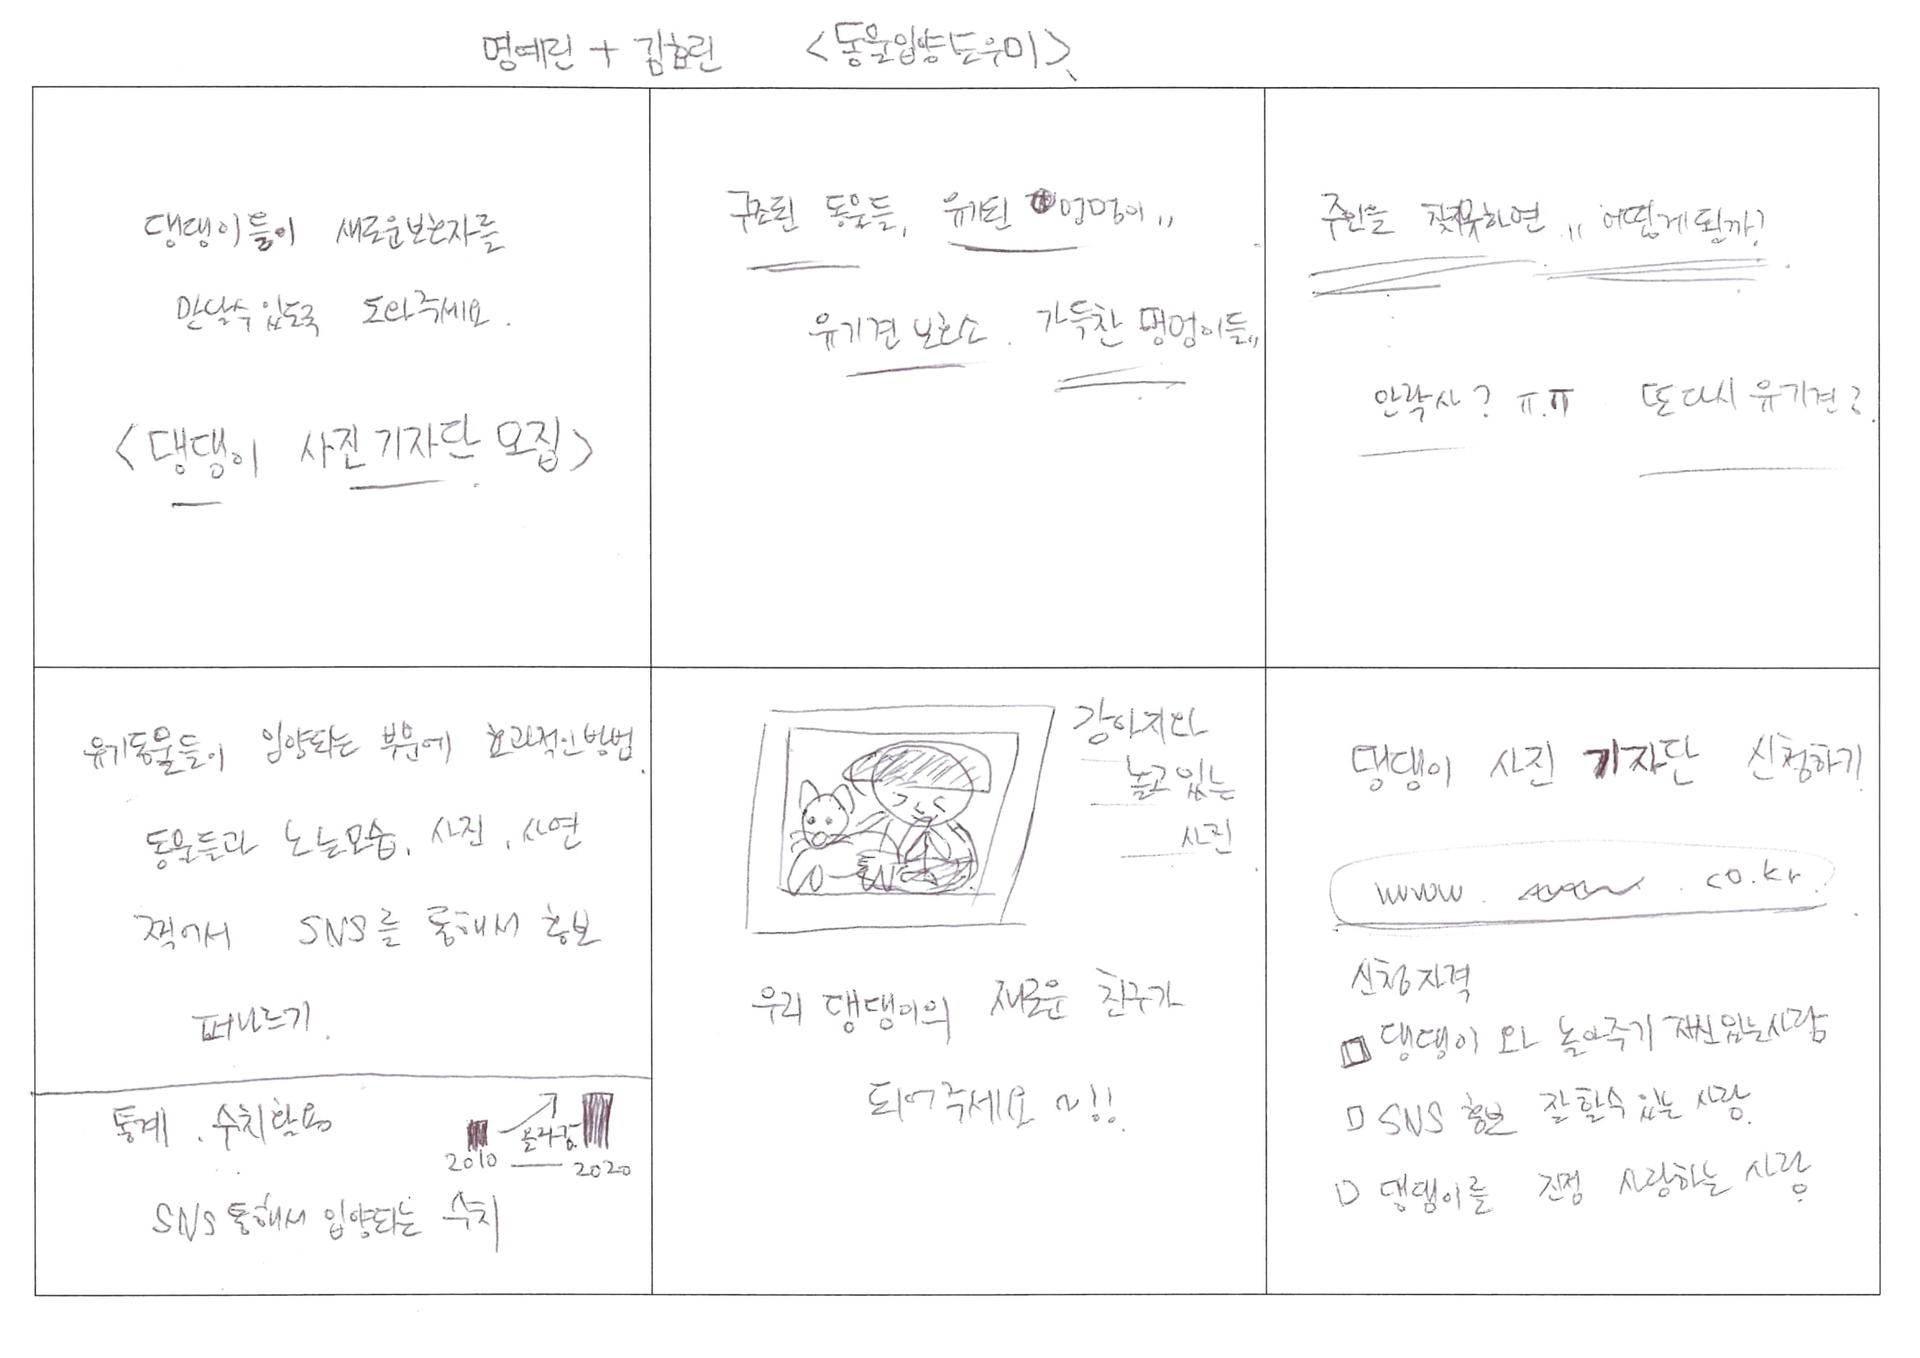 명예린 + 김효린 <동물입양도우미>
댕댕이들이 새로운보호자를
만날수있도록 도와주세요.
<댕댕이 사진기자단 모집>
구조된 동물들, 유기된 멍멍이,,
유기견 보호소. 가득찬 멍멍이들,,
주인을 찾지못하면,, 어떻게될까?
안락사? ㅠ.ㅠ 또다시 유기견?
유기동물들이 입양되는 부분에 효과적인방법.
동물들과 노는모습, 사진, 사연
찍어서 SNS를 통해서 홍보
퍼나르기.
통계, 수치활용
2010 올라감 2020
SNS통해서 입양되는 수치
강아지와
놀고있는
사진
우리 댕댕이의 새로운 친구가
되어주세요~!!
댕댕이 사진 기자단 신청하기
www. .co.kr.
신청자격
댕댕이와 놀아주기 자신있는사람
SNS 홍보 잘할수있는 사람
댕댕이를 진정 사랑하는 사람